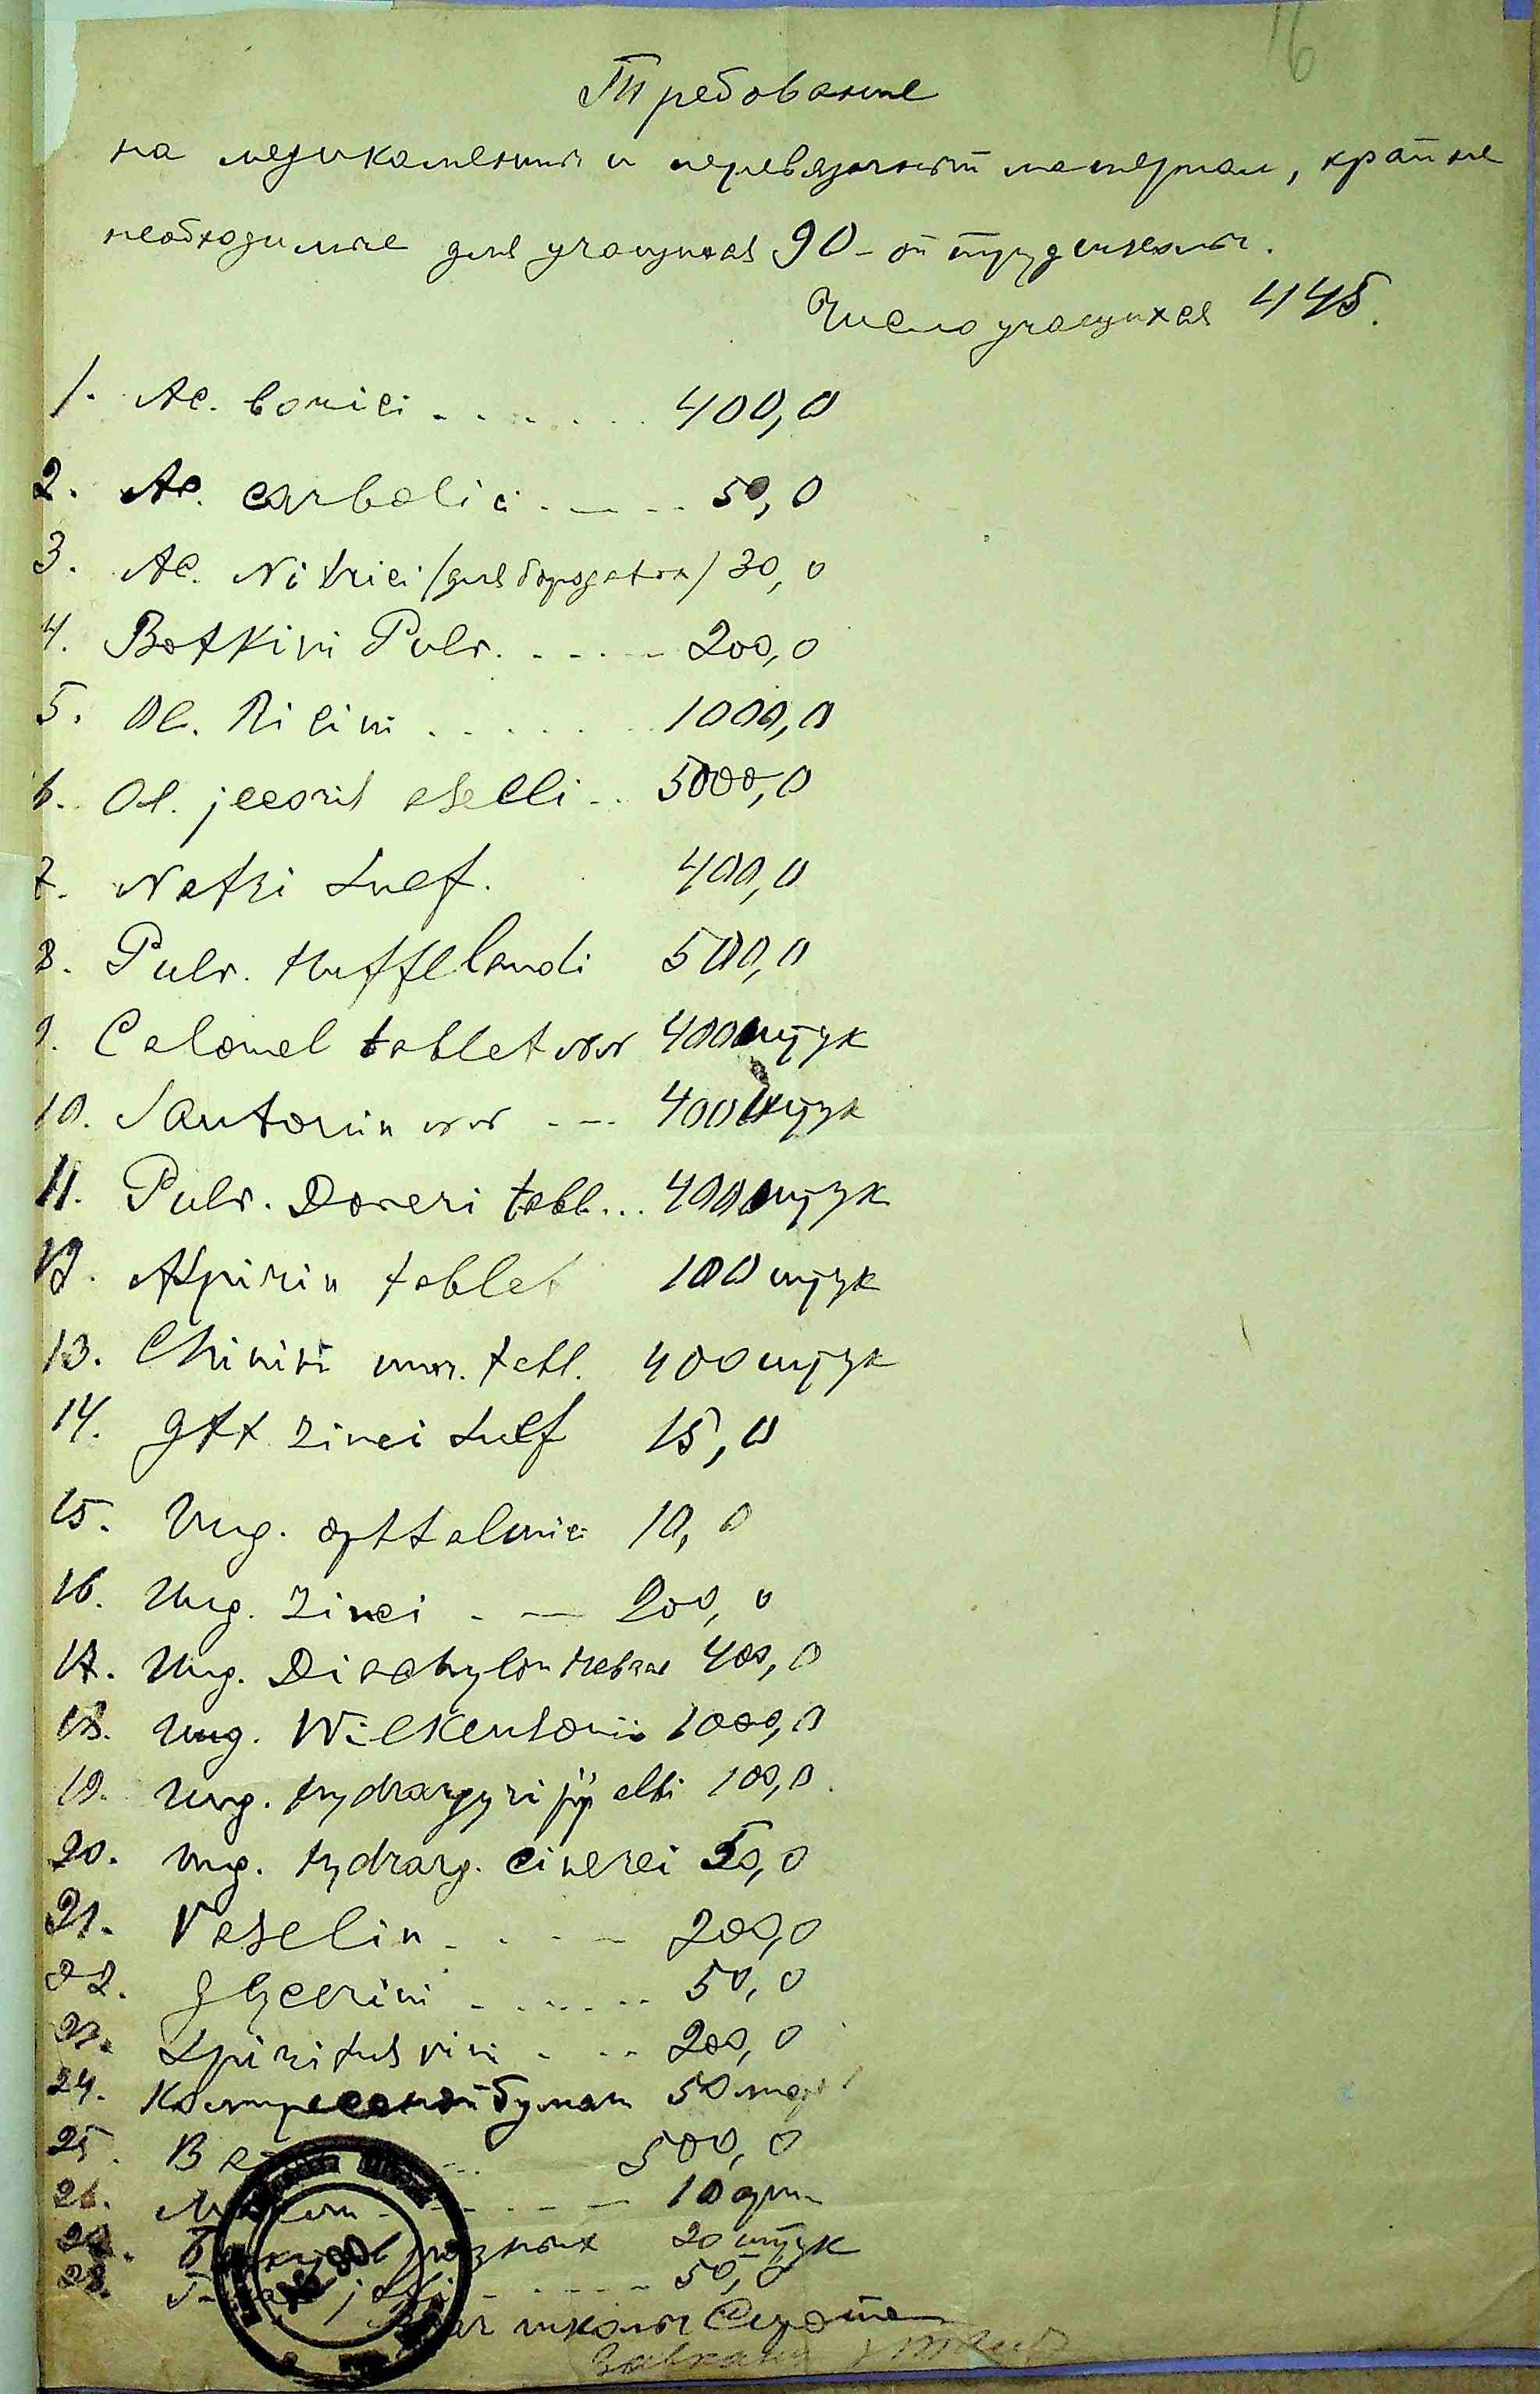 16
Требование
на медикаменты и перевязочный материал, крайне
необходимые для учащихся 90-ой трудшколы.
Число учащихся 445.
1. Ac. borici . . . . . . 400,0
2. Ac. carbolici . — . . 50,0
3. Ac. Nitrici /для бородавок/ 30,0
4. Botkini Pulv. . . . . – 200,0
5. Ol. Ricini . . . . . . 1000,0
6. Ol. jecoris aselli . . 5000,0
7. Natri sulf. 400,0
8. Pulv. Huffelandi 500,0
9. Calomel tablet 400 штук
10. Santonin . – – 400 штук
11. Pulv. Doveri tabl... 400 штук
12. Aspirin tablet 100 штук
13. Chinini mur. tabl. 400 штук
14. gtt zinci sulf 15,0
15. Ung. opttalmic 10,0
16. Ung. zinci . — 200,0
17. Ung. Diachylon Hebrae 400,0
18. Ung. Wilkensonii 1000,0
19. Ung. hydrargyri pp albi 100,0
20. Ung. hydrarg. cinerei 50,0
21. Vaselin . . . – 200,0
22. Glycerini . . . . . . 50,0
23. Spiritus vini . . . 200,0
24. Компрессной бумаги 50
25. 500,0
26. 10
27. глазных 20 штук
28. 50,0
Врач школы